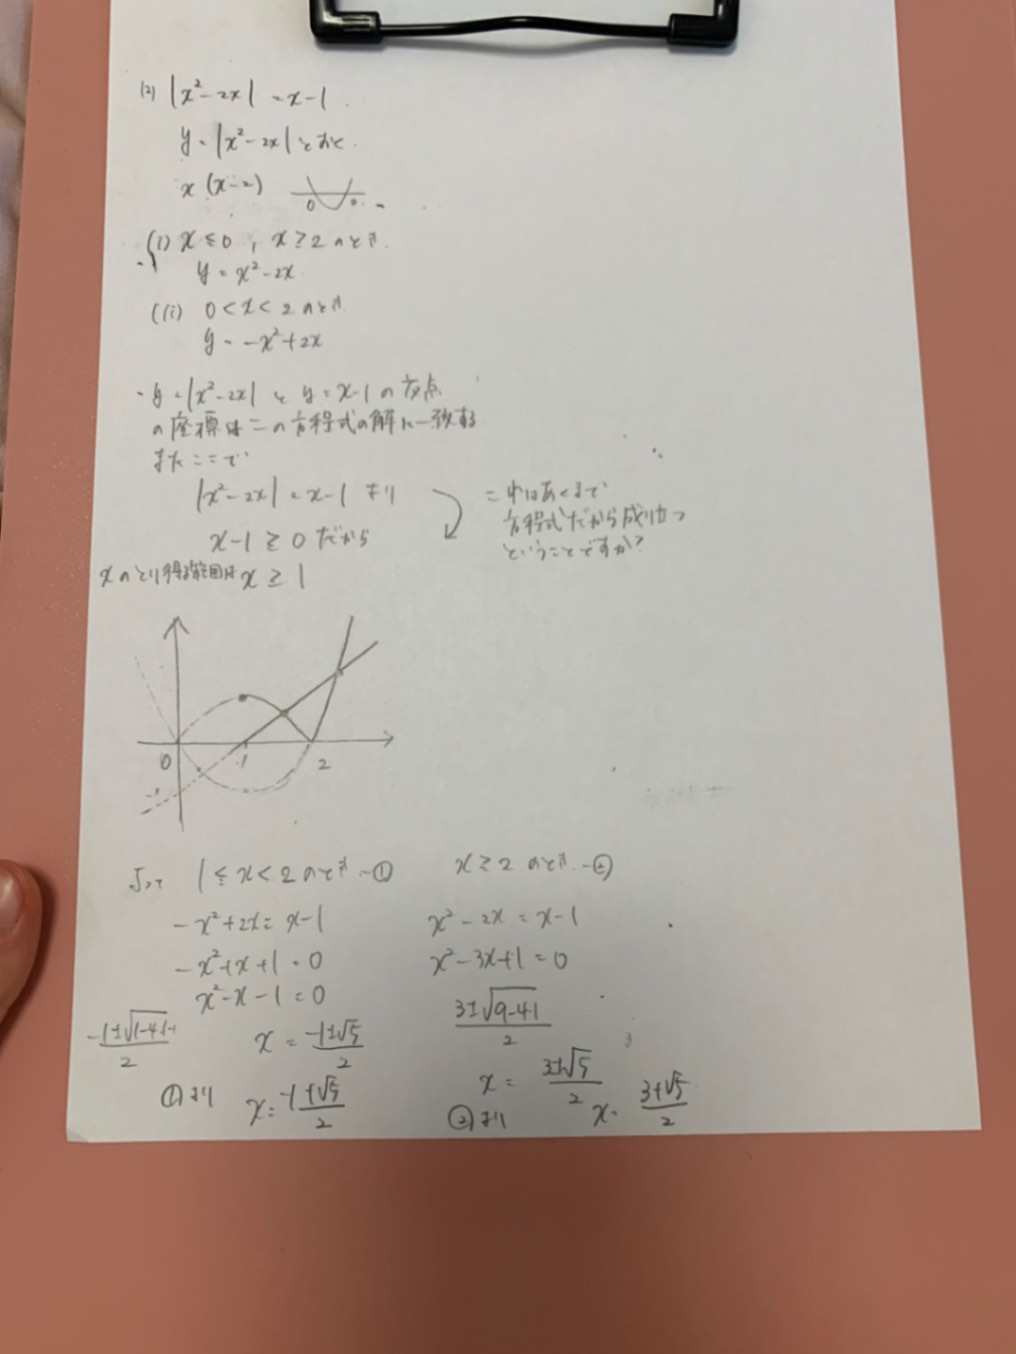 (2) |x²-2x| = x-1.
y=|x²-2x|とおく.
x(x-2)
0 2
(i) x≦0, x≧2のとき.
y=x²-2x
(ii) 0<x<2のとき
y=-x²+2x
・y=|x²-2x|とy=x-1の交点
の座標はこの方程式の解に一致する
またここで
|x²-2x|=x-1より
x-1≧0だから
xのとり得る範囲は x≧1
これはあくまで
方程式だから成り立つ
ということですか?
0 1 2
-1
よって 1≦x<2のとき-①
-x²+2x=x-1
-x²+x+1=0
x²-x-1=0
x=(-1±√5)/2
①より x=(-1+√5)/2
x≧2のとき-②
x²-2x=x-1
x²-3x+1=0
(3±√(9-4・1))/2
x=(3±√5)/2
②より x=(3+√5)/2